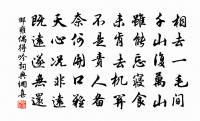 相去一毛間
千山復萬山
雖能忘寢食
未肯去機關
不是責人
奈何口看
天心況非遠
既遠遂無還
邵雍偶得吟詞典網書